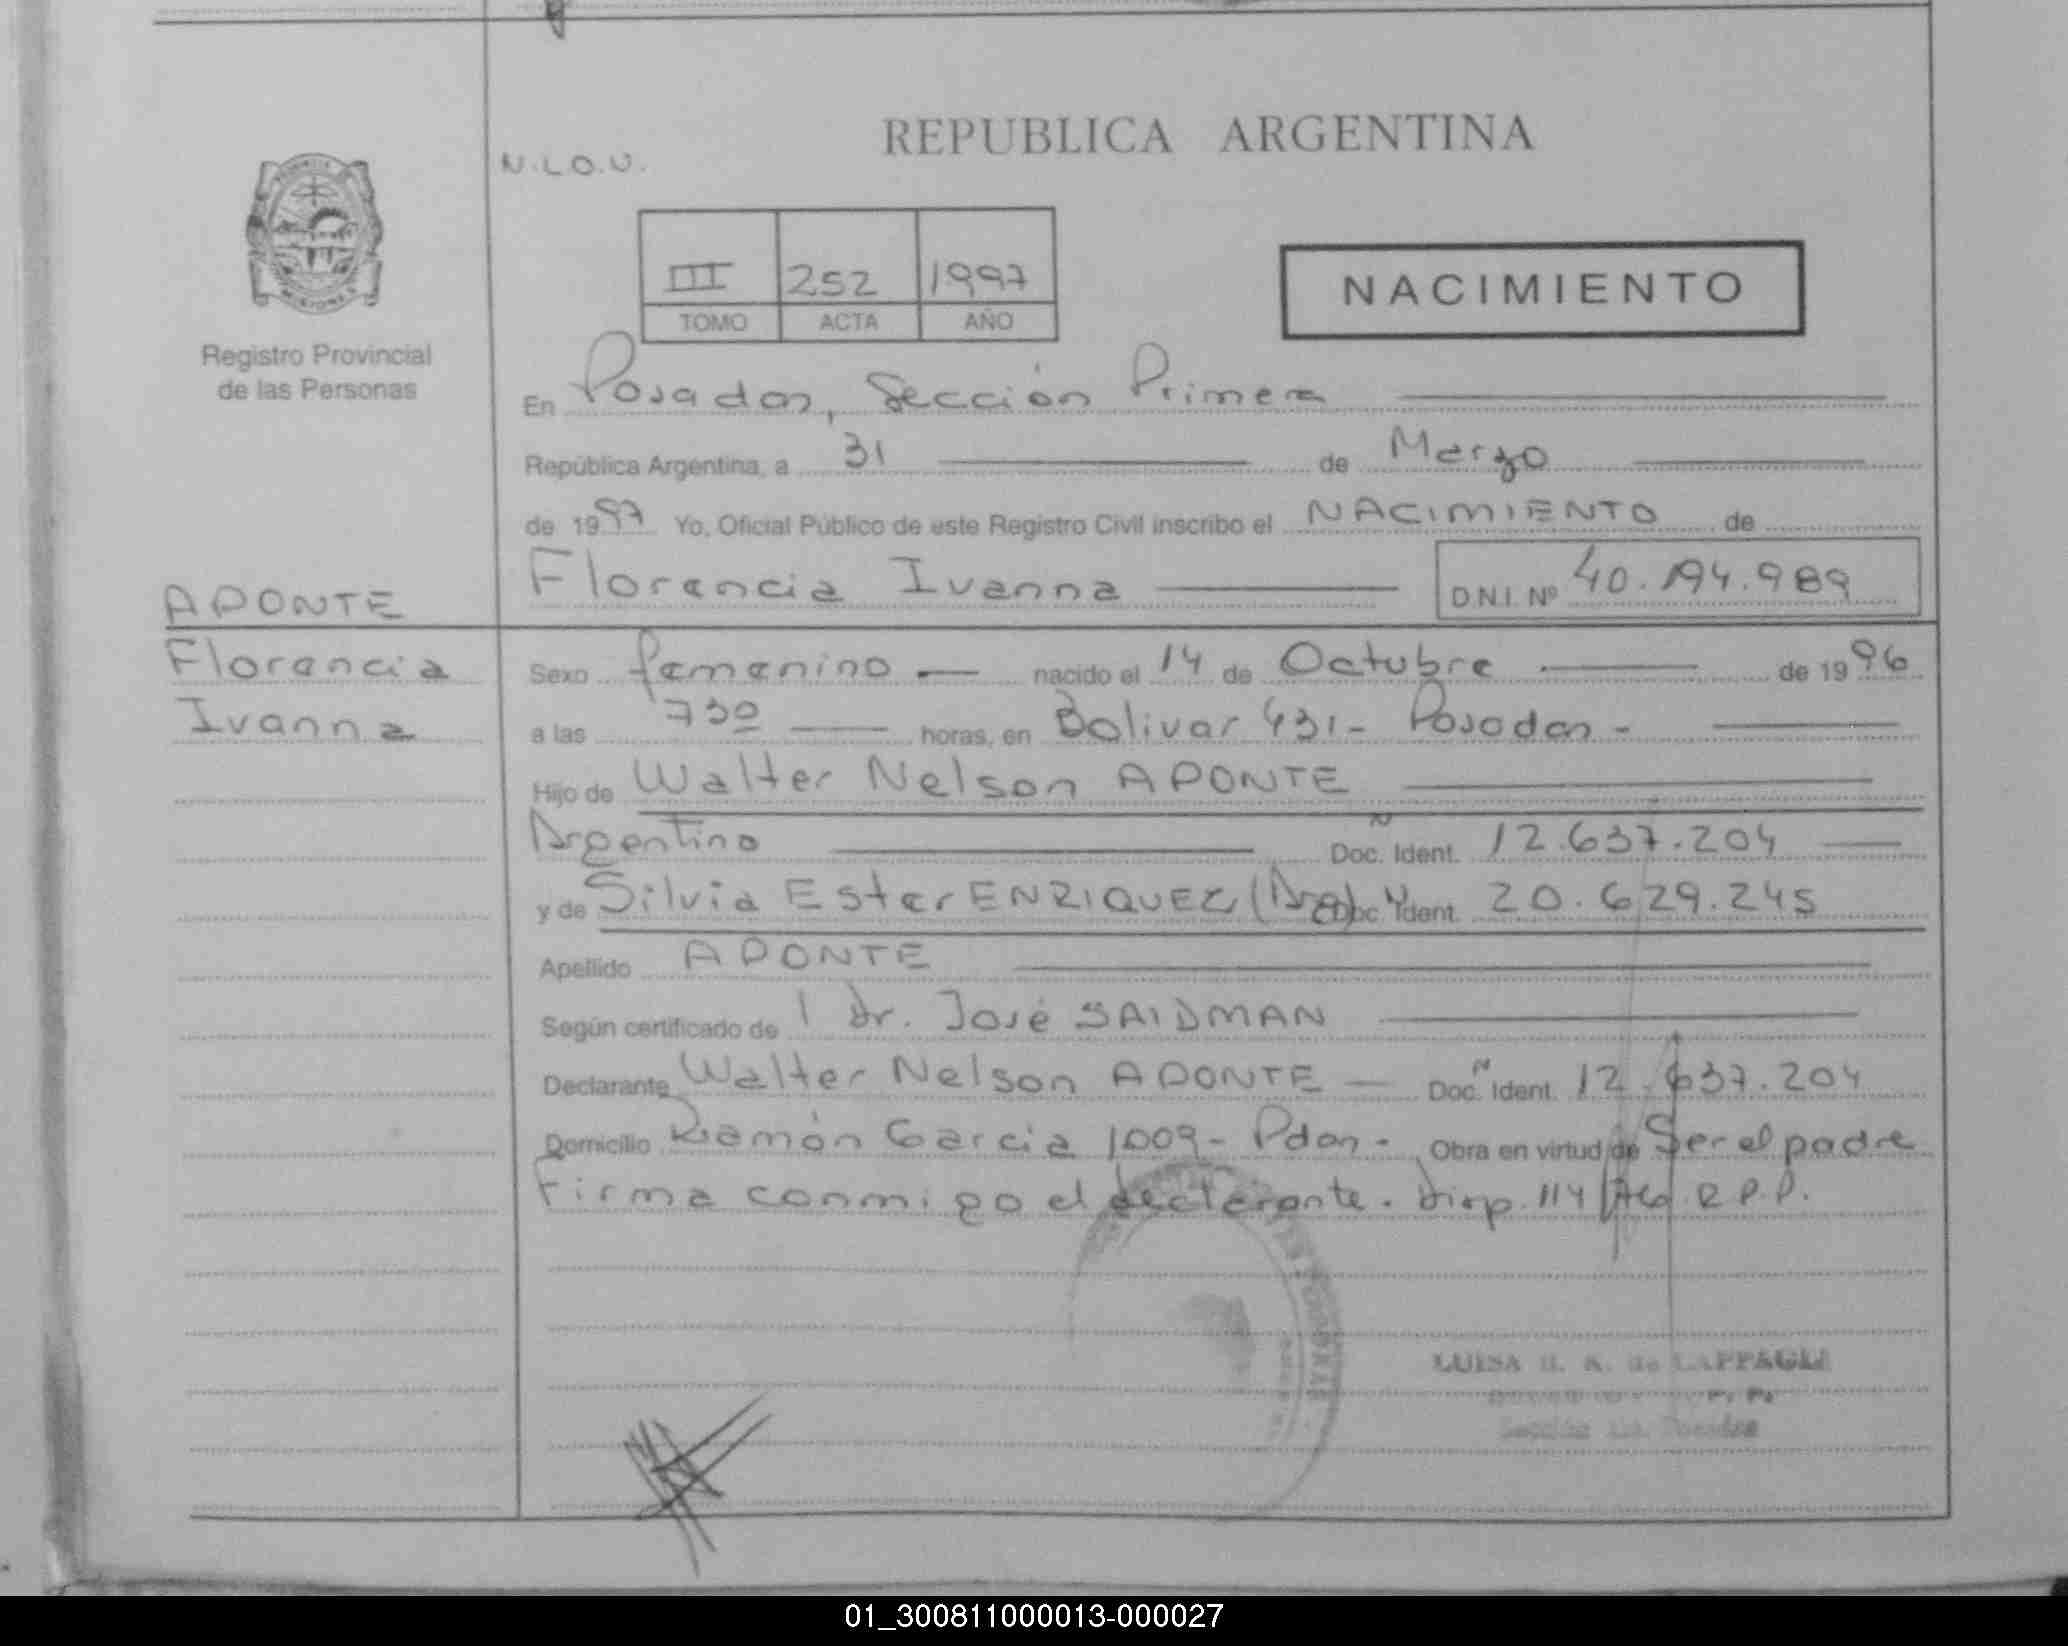 REPUBLICA ARGENTINA
N.L.O.U.
III 252 1997
TOMO ACTA AÑO
NACIMIENTO
MISIONES
Registro Provincial
de las Personas
En Posadas, Sección Primera
República Argentina, a 31 de Marzo
de 1997 Yo, Oficial Público de este Registro Civil inscribo el NACIMIENTO de
Florencia Ivanna D.N.I. Nº 40.194.989
APONTE
Florencia
Ivanna
Sexo femenino nacido el 14 de Octubre de 1996
a las 730 horas, en Bolivar 431- Posadas -
Hijo de Walter Nelson APONTE
Argentino Doc. Ident. 12.637.204
y de Silvia Ester ENRIQUEZ (Arg) Doc. Ident. 20.629.245
Apellido APONTE
Según certificado de 1 Dr. José SAIDMAN
Declarante Walter Nelson APONTE Doc. Ident. 12.637.204
Domicilio Ramón Garcia 1009- Pdas- Obra en virtud de Ser el padre
Firma conmigo el declarante. Disp. 114/76 R.P.P.
LUISA de LAPPAGLI
Sección Posadas
01_300811000013-000027